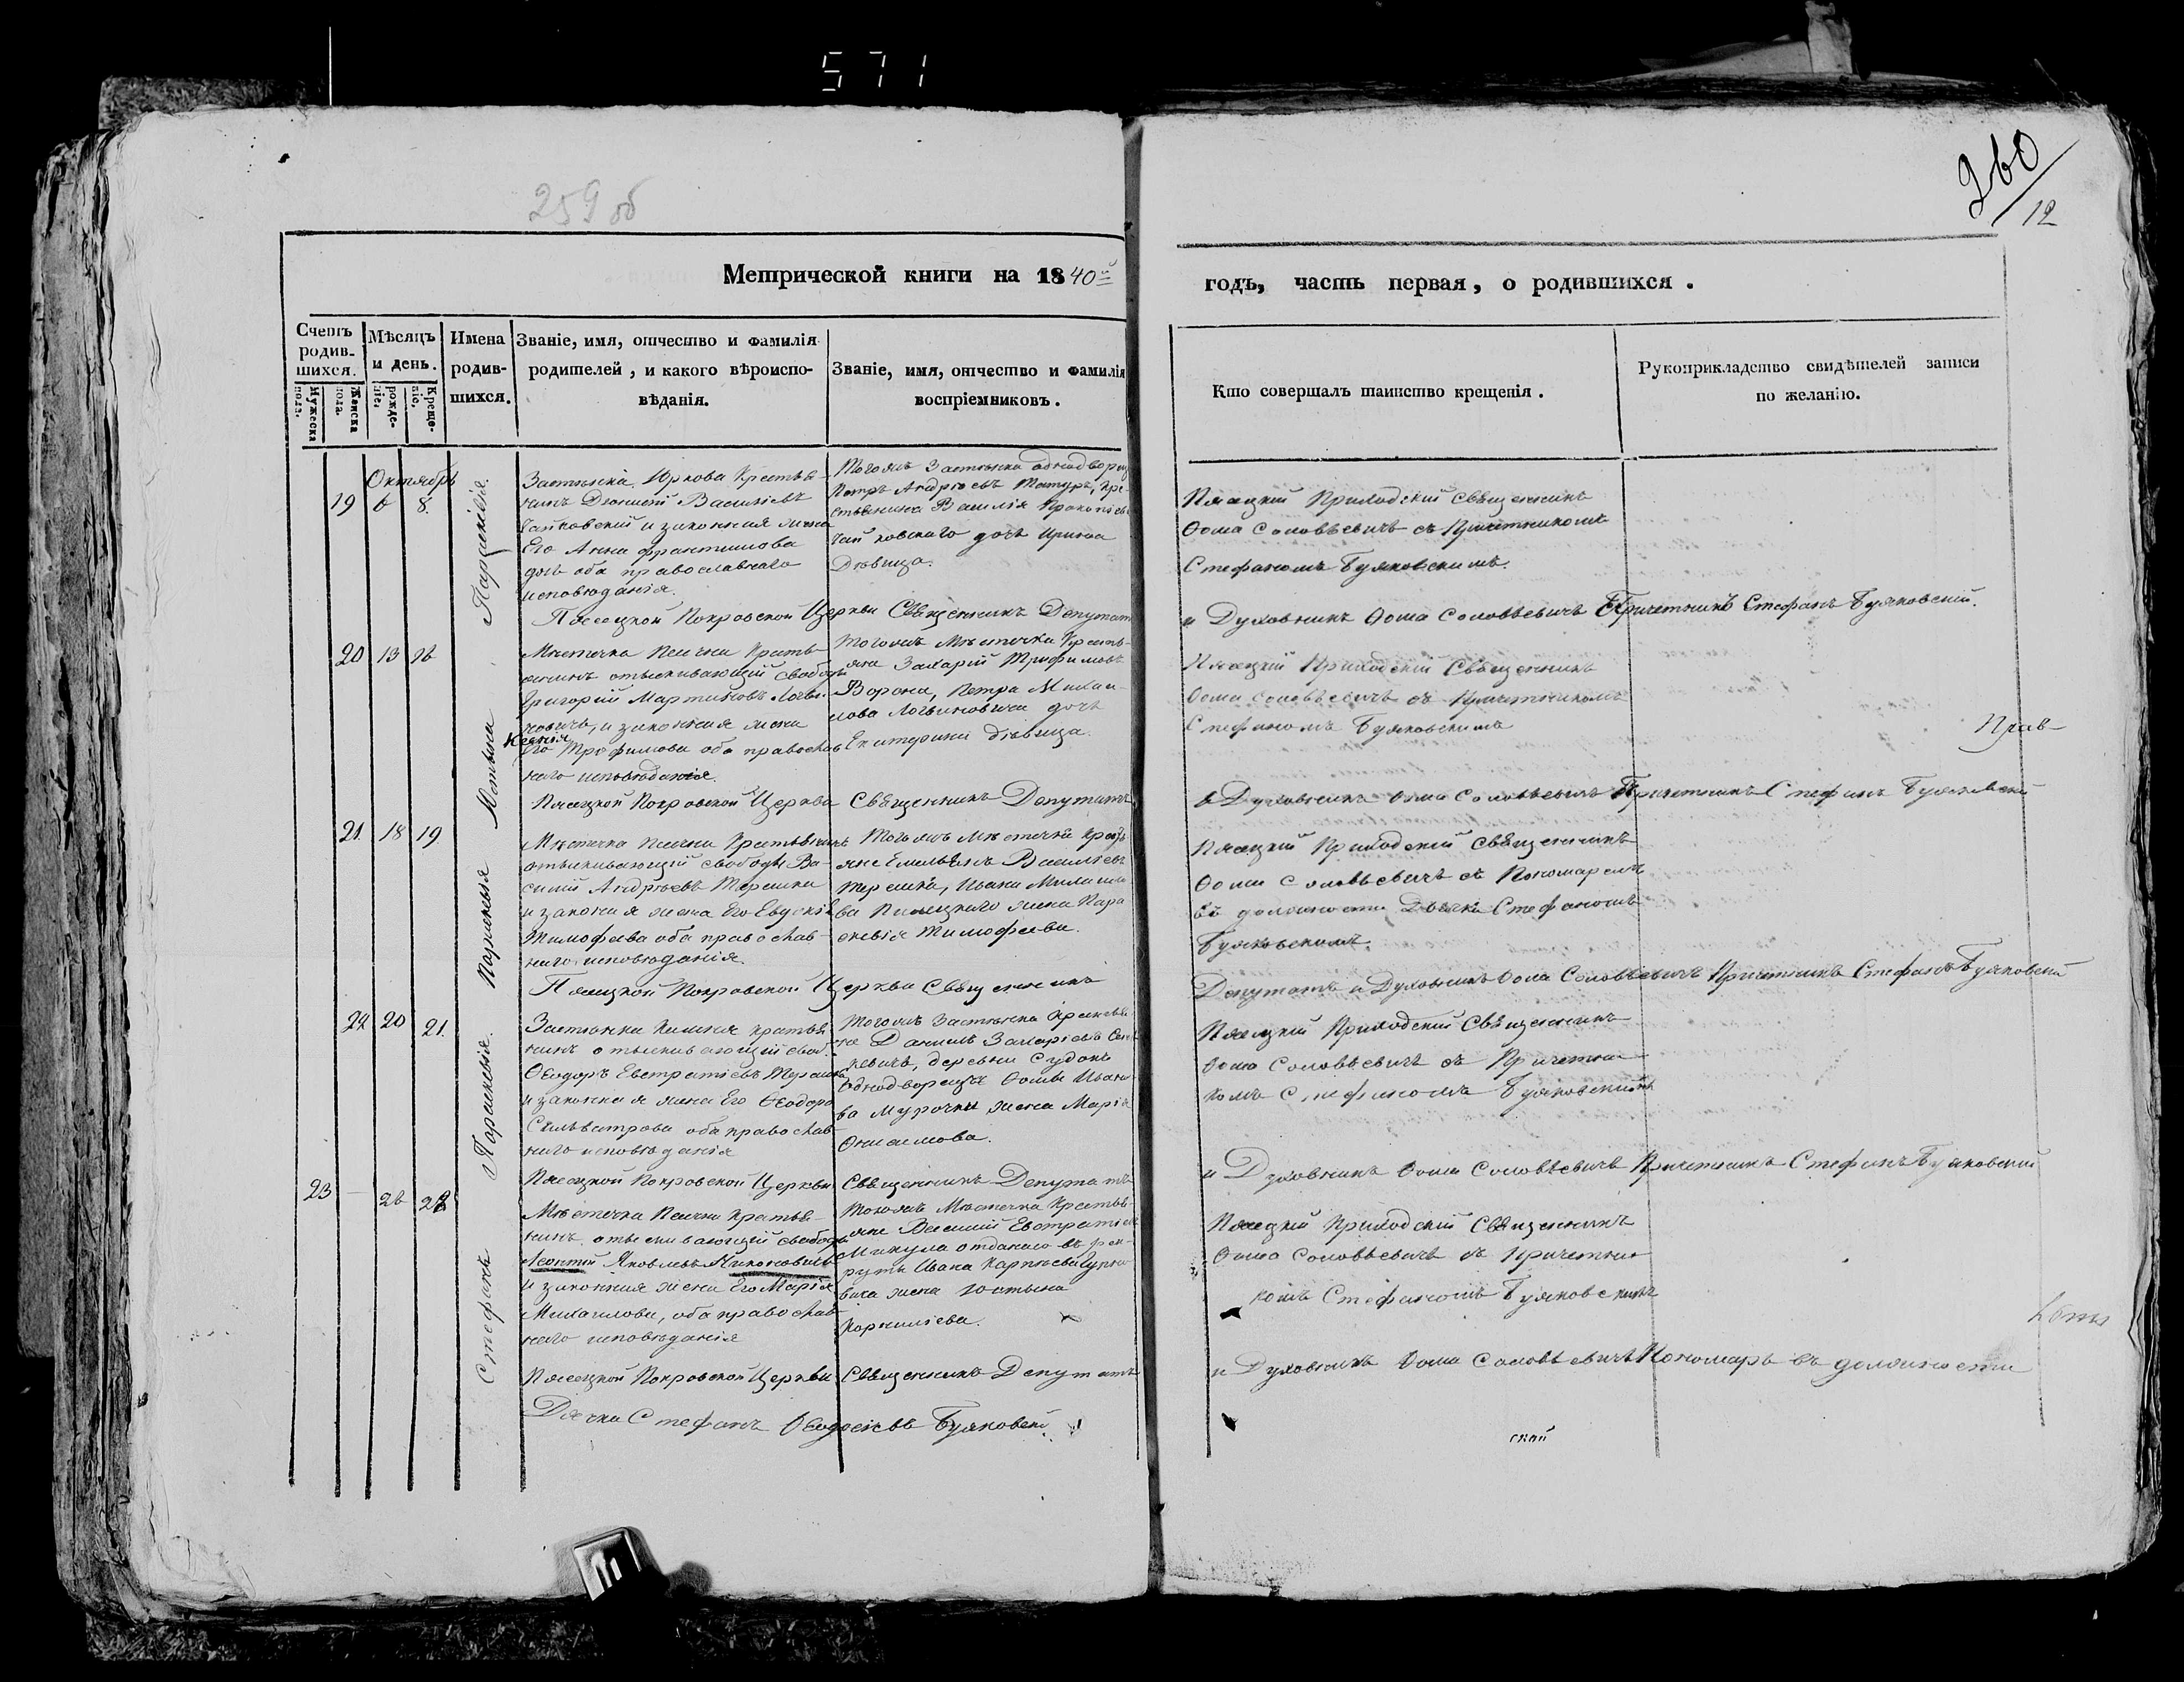 571
259 об
260
12
Метрической книги на 1840й
годъ, часть первая, о родившихся.
Счетъ родив-шихся.
Мужеска пола.
Женска пола.
Мѣсяцъ и день.
рожде-нія.
Креще-нія.
Имена родив-шихся.
Званіе, имя, отчество и фамилія
родителей, и какого вѣроиспо-
вѣданія.
Званіе, имя, отчество и фамилія
воспріемниковъ.
Кто совершалъ таинство крещенія.
Рукоприкладство свидѣтелей записи
по желанію.
Октябрь
19 6 8.
Параскевія
Застѣнка Юркова Крестья-
нинъ Діонисій Василіевъ
Чайковскій и законная жена
Его Анна Францишкова
дочь оба православнаго
исповѣданія.
Тогожъ Застѣнка однодворец
Петръ Андреевъ Татуръ, кре-
стьянина Василія Прокопіева
Чайковскаго дочь Ирина
Дѣвица.
Пясецкій Приходскій Священникъ
Ѳома Соловѣевичъ съ Причетникомъ
Стефаномъ Буяковскимъ.
Пясецкой Покровской Церкви Священникъ Депутатъ
и Духовникъ Ѳома Соловѣевичъ Причетникъ Стефанъ Буяковскій.
20 13 16
Мѣстечка Песочна Кресть-
янинъ отыскивающій свободы
Григорій Мартиновъ Логви-
новичъ, и законная жена
Ксенія
Его Трофимова оба православ
наго исповѣданія.
Тогожъ Мѣстечка Кресть-
яне Захарій Трофимовъ
Ворона, Петра Михаи-
лова Логвиновича дочь
Екатерина дѣвица.
Пясецкій Приходскій Священникъ
Ѳома Соловѣевичъ съ Причетникомъ
Стефаномъ Буяковскимъ
Прав-
Пясецкой Покровской Церкви Священникъ Депутатъ
и Духовникъ Ѳома Соловѣевичъ Причетникъ Стефанъ Буяковскій
21. 18 19
Отыскивающій свободы Ва-
силій Андреевъ Терешка
и законная жена Его Евдокія
Тимофѣева оба православ-
наго исповѣданія.
Тогожъ Мѣстечка Крестья
яне Емельянъ Василіевъ
Терешка, Ивана Михаило
ва Пясецкаго жена Пара
скевія Тимофѣева.
Пясецкій Приходскій Священникъ
Ѳома Соловѣевичъ съ Пономаремъ
въ должности Дьячка Стефаномъ
Буяковскимъ.
Пясецкой Покровской Церкви Священникъ
Депутатъ и Духовникъ Ѳома Соловѣевичъ Причетникъ Стефанъ Буяковскій
22 20 21.
Параскевія.
нинъ отыскивающій своб.
Ѳеодоръ Евстратіевъ Терешка
и законная жена Его Ѳеодора
Сильвестрова оба православ
наго исповѣданія
не Даніилъ Захаріевъ
деревни Судоки
Однодворца Ѳомы Ивано
ва Мурочки жена Марія
Онисимова.
Пясецкій Приходскій Священникъ
Ѳома Соловѣевичъ съ Причетни
комъ Стефаномъ Буяковскимъ
Пясецкой Покровской Церкви Священникъ Депутатъ
и Духовникъ Ѳома Соловѣевичъ Причетникъ Стефанъ Буяковскій
23 — 26 28
Стефанъ
нинъ отыскивающій свободы
Леонтій Яковлевъ Никоновичъ
и законная жена Его Марія
Михаилова, оба православ
наго исповѣданія
Тогожъ Мѣстечка Крестья-
яне Василій Евстратіевъ
Микула отданаго въ рек-
руты Ивана Карпѣева
вича жена Юстына
Корниліева.
Пясецкій Приходскій Священникъ
Ѳома Соловѣевичъ съ Причетни
комъ Стефаномъ Буяковскимъ
Пясецкой Покровской Церкви Священникъ Депутатъ
и Духовникъ Ѳома Соловѣевичъ Пономарь въ должности
Дьячка Стефанъ Ѳеодосіевъ Буяковскій.
ской